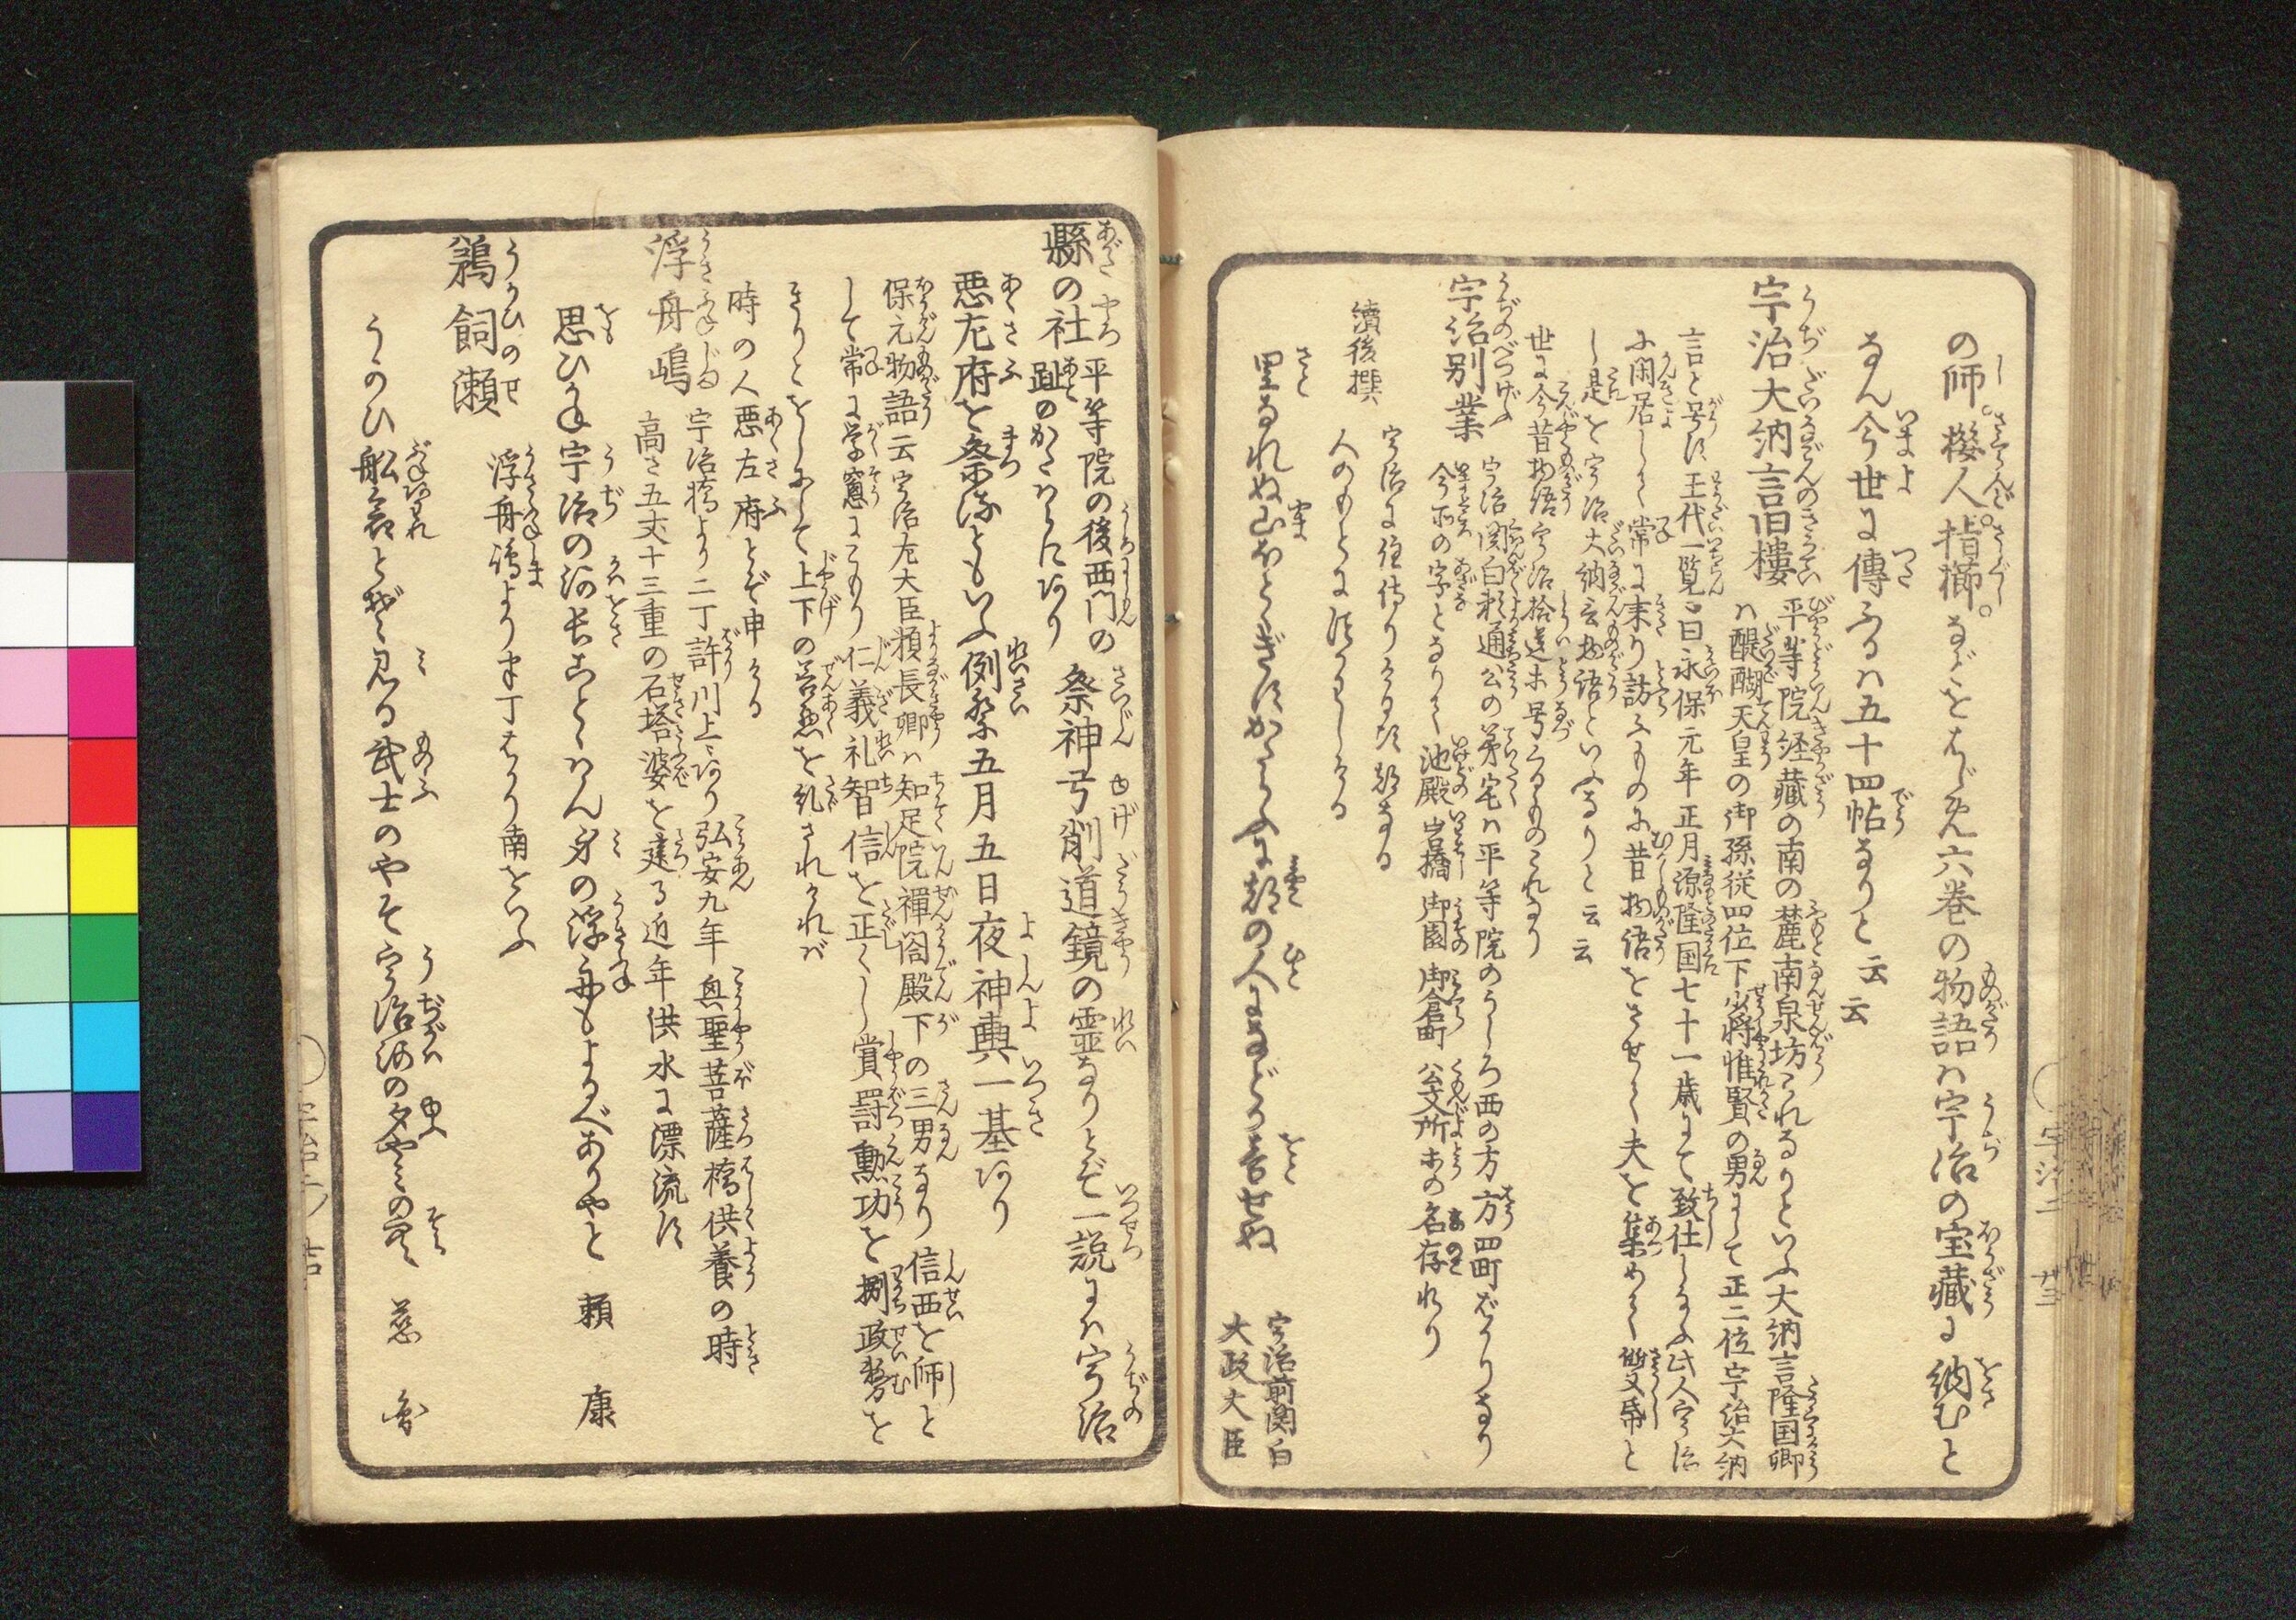 の師。櫻人。指櫛。などをはじめ六巻の物語ハ宇治の宝蔵に納むと
なん今世に傳ふるハ五十四帖なりと云云
宇治大納言旧樓 平等院経蔵の南の麓南泉坊これなりといふ大納言隆国卿
ハ醍醐天皇の御孫従四位下少将惟賢の男にして正二位宇治大納
言と号す王代一覧曰永保元年正月源隆国七十一歳にて致仕しなふ此人宇治
に閑居して常に来り訪ふものに昔物語をさせて夫を集めて雙帋と
し是を宇治大納言物語といふなりと云云
世に今昔物語宇治拾遺ホ号くるものこれなり
宇治別業 宇治関白頼通公の第宅ハ平等院のうしろ西の方方四町ばかりなり
今所の字となりて池殿岩橋御園御倉町公文所ホの名存れり
續後撰
宇治に住侍りける比都なる
人のもとにつかわしける
里なれぬ山ほとゝぎすかたらふに都の人はなどか音せぬ
宇治前関白
大政大臣
縣の社 平等院の後西門の
趾のかたハらにあり
祭神弓削道鏡の霊なりとぞ一説にハ宇治
悪左府を祭るともいふ例祭五月五日夜神輿一基あり
保元物語云宇治左大臣頼長卿ハ知足院禅閤殿下の三男なり信西を師と
して常に学窓にこもり仁義礼智信を正くし賞罰勲功を捌政務を
きりとをしにして上下の善悪を糺されけれバ
時の人悪左府とぞ申ける
浮舟嶋 宇治橋より二丁許川上にあり弘安九年興聖菩薩橋供養の時
高さ五丈十三重の石塔婆を建る近年供水に漂流す
思ひかね宇治の河長ことゝハん身の浮舟もよるべありやと 頼康
鵜飼瀬 浮舟嶋より半丁ばかり南をいふ
うかひ舩哀とぞ見る武士のやそ宇治河の夕やミの空 慈